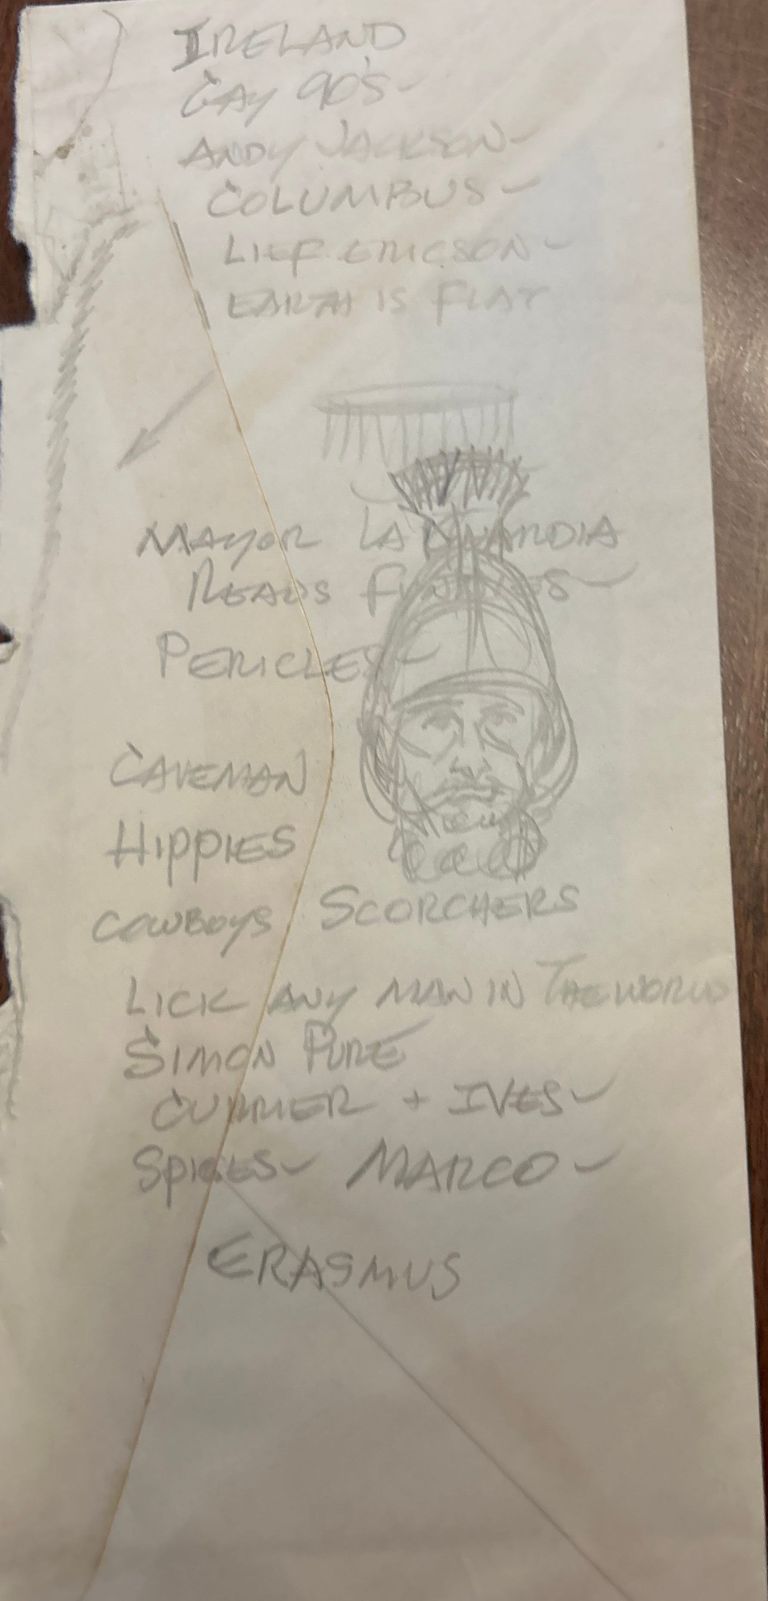 IRELAND
GAY 90'S -
ANDY JACKSON -
COLUMBUS -
LIEF ERICSON -
EARTH IS FLAT
MAYOR LA GUARDIA
READS FUNNIES -
PERICLES -
CAVEMAN
HIPPIES
COWBOYS SCORCHERS
LICK ANY MAN IN THE WORLD
SIMON PURE
CURRIER + IVES -
SPICES - MARCO -
ERASMUS